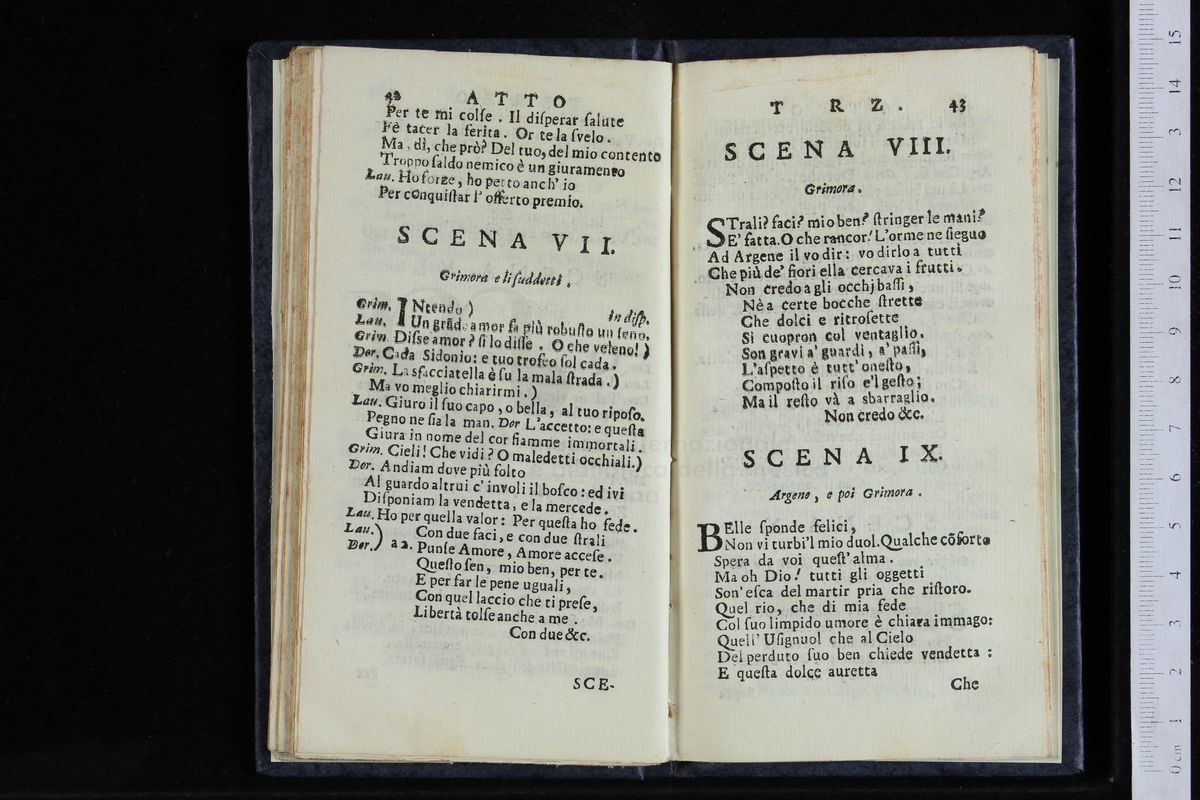 42 ATTO
Per te mi colſe . Il diſperar ſalute
Fè tacer la ferita . Or te la ſvelo .
Ma , dì, che prò? Del tuo, del mio contento
Troppo ſaldo nemico è un giuramento
Lau. Ho forze, ho petto anch' io
Per conquiſtar l' offerto premio.
SCENA VII.
Grimora e li ſuddetti .
Grim. INtendo ) in diſp.
Lau. Un grãde amor fa più robuſto un ſeno.
Grim. Diſse amor? ſi lo diſſe . O che veleno! )
Dor. Cada Sidonio: e tuo trofeo ſol cada .
Grim. La sfacciatella è ſu la mala ſtrada .)
Ma vo meglio chiarirmi .)
Lau. Giuro il ſuo capo , o bella , al tuo ripoſo.
Pegno ne ſia la man. Dor L'accetto: e queſta
Giura in nome del cor fiamme immortali .
Grim. Cieli! Che vidi? O maledetti occhiali.)
Dor. Andiam dove più folto
Al guardo altrui c' involi il boſco : ed ivi
Diſponiam la vendetta, e la mercede .
Lau. Ho per quella valor: Per queſta ho fede .
Lau.) Con due faci, e con due ſtrali
Dor.) a 2. Punſe Amore, Amore acceſe .
Queſto ſen, mio ben, per te.
E per far le pene uguali,
Con quel laccio che ti preſe,
Libertà tolſe anche a me .
Con due &c.
SCE-
T RZ. 43
SCENA VIII.
Grimora.
STrali? faci? mio ben? ſtringer le mani?
E' fatta. O che rancor! L'orme ne ſieguo
Ad Argene il vo dir : vo dirlo a tutti
Che più de' fiori ella cercava i frutti .
Non credo agli occhj baſſi ,
Nè a certe bocche ſtrette
Che dolci e ritroſette
Si cuopron col ventaglio.
Son gravi a' guardi , a' paſſi,
L'aſpetto è tutt' oneſto,
Compoſto il riſo e'l geſto ;
Ma il reſto và a sbarraglio.
Non credo &c.
SCENA IX.
Argene, e poi Grimora .
BElle ſponde felici,
Non vi turbi'l mio duol. Qualche cõforto
Spera da voi queſt' alma .
Ma oh Dio! tutti gli oggetti
Son' eſca del martir pria che riſtoro.
Quel rio, che di mia fede
Col ſuo limpido umore è chiara immago:
Quell' Uſignuol che al Cielo
Del perduto ſuo ben chiede vendetta :
E queſta dolce auretta
Che